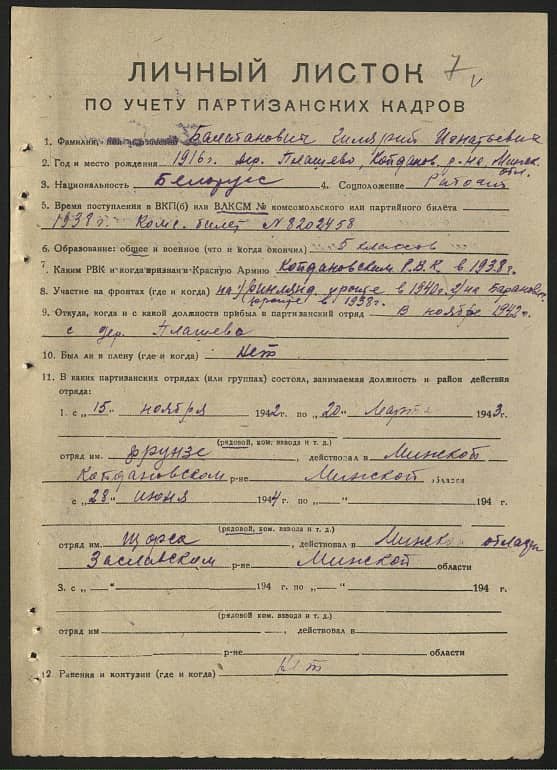 ЛИЧНЫЙ ЛИСТОК 7
ПО УЧЕТУ ПАРТИЗАНСКИХ КАДРОВ
1. Фамилия, Игнатьевич
2. Год и место рождения 1916 г. дер. Плашево, Койданов. р-на Минск. обл.
3. Национальность Белорус 4. Соцположение Рабочий
5. Время поступления в ВКП(б) или ВЛКСМ № комсомольского или партийного билета
1938 г. Комс. билет № 8202458
6. Образование: общее и военное (что и когда окончил) 5 классов
7. Каким РВК и когда призван в Красную Армию Койдановским Р.В.К. в 1938 г.
8. Участие на фронтах (где и когда) на 1) Финлянд. фронте в 1940 г. 2) на Баранов.
фронте в 1938 г.
9. Откуда, когда и с какой должности прибыл в партизанский отряд В ноябре 1942 г.
с дер. Плашева
10. Был ли в плену (где и когда) Нет
11. В каких партизанских отрядах (или группах) состоял, занимаемая должность и район действия
отряда:
1. с „15“ ноября 1942 г. по „20“ Марта 1943 г.
(рядовой, ком. взвода и т. д.)
отряд им. Фрунзе, действовал в Минской
Койдановском р-не Минской области
с „28“ июня 1944 г. по „ “ 194 г.
(рядовой, ком. взвода и т. д.)
отряд им. Щорса, действовал в Минской области
Заславском р-не Минской области
3. с „ “ 194 г. по „ “ 194 г.
(рядовой ком. взвода и т. д.)
отряд им , действовал в
р-не области
12. Ранения и контузии (где и когда) Нет